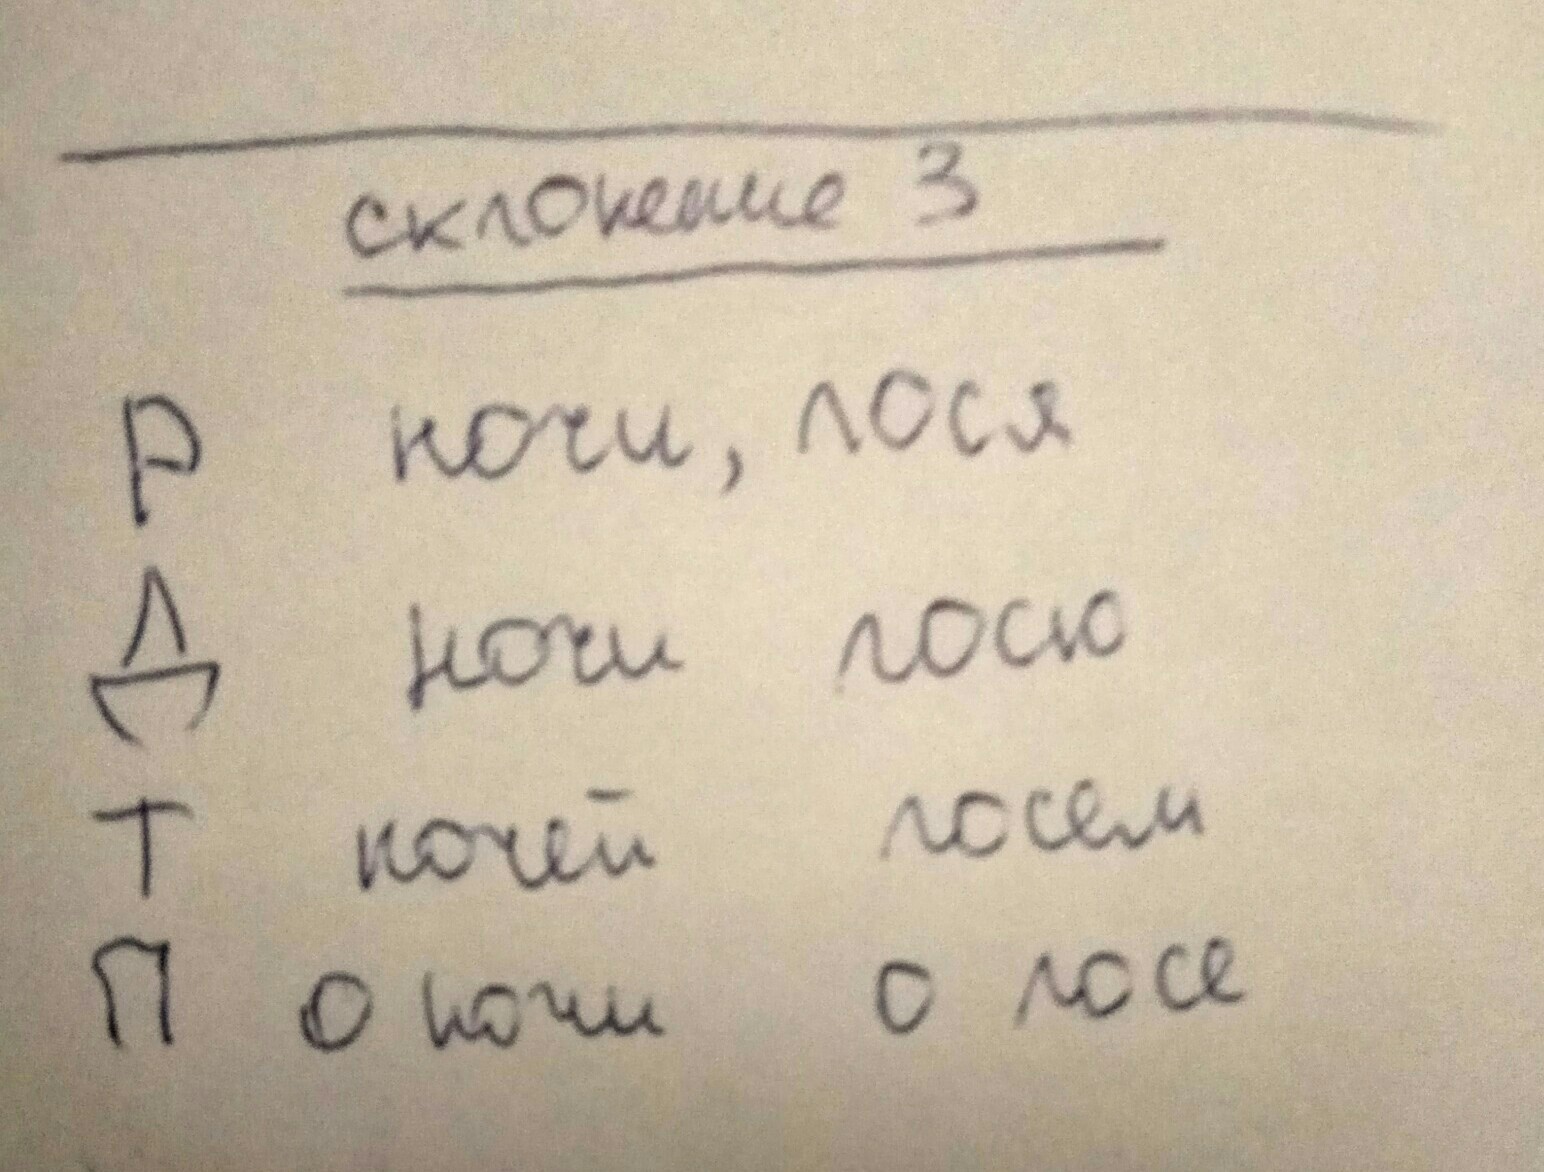 склонение 3
Р ночи, лося
Д ночи лосю
Т ночей лосем
П о ночи о лосе